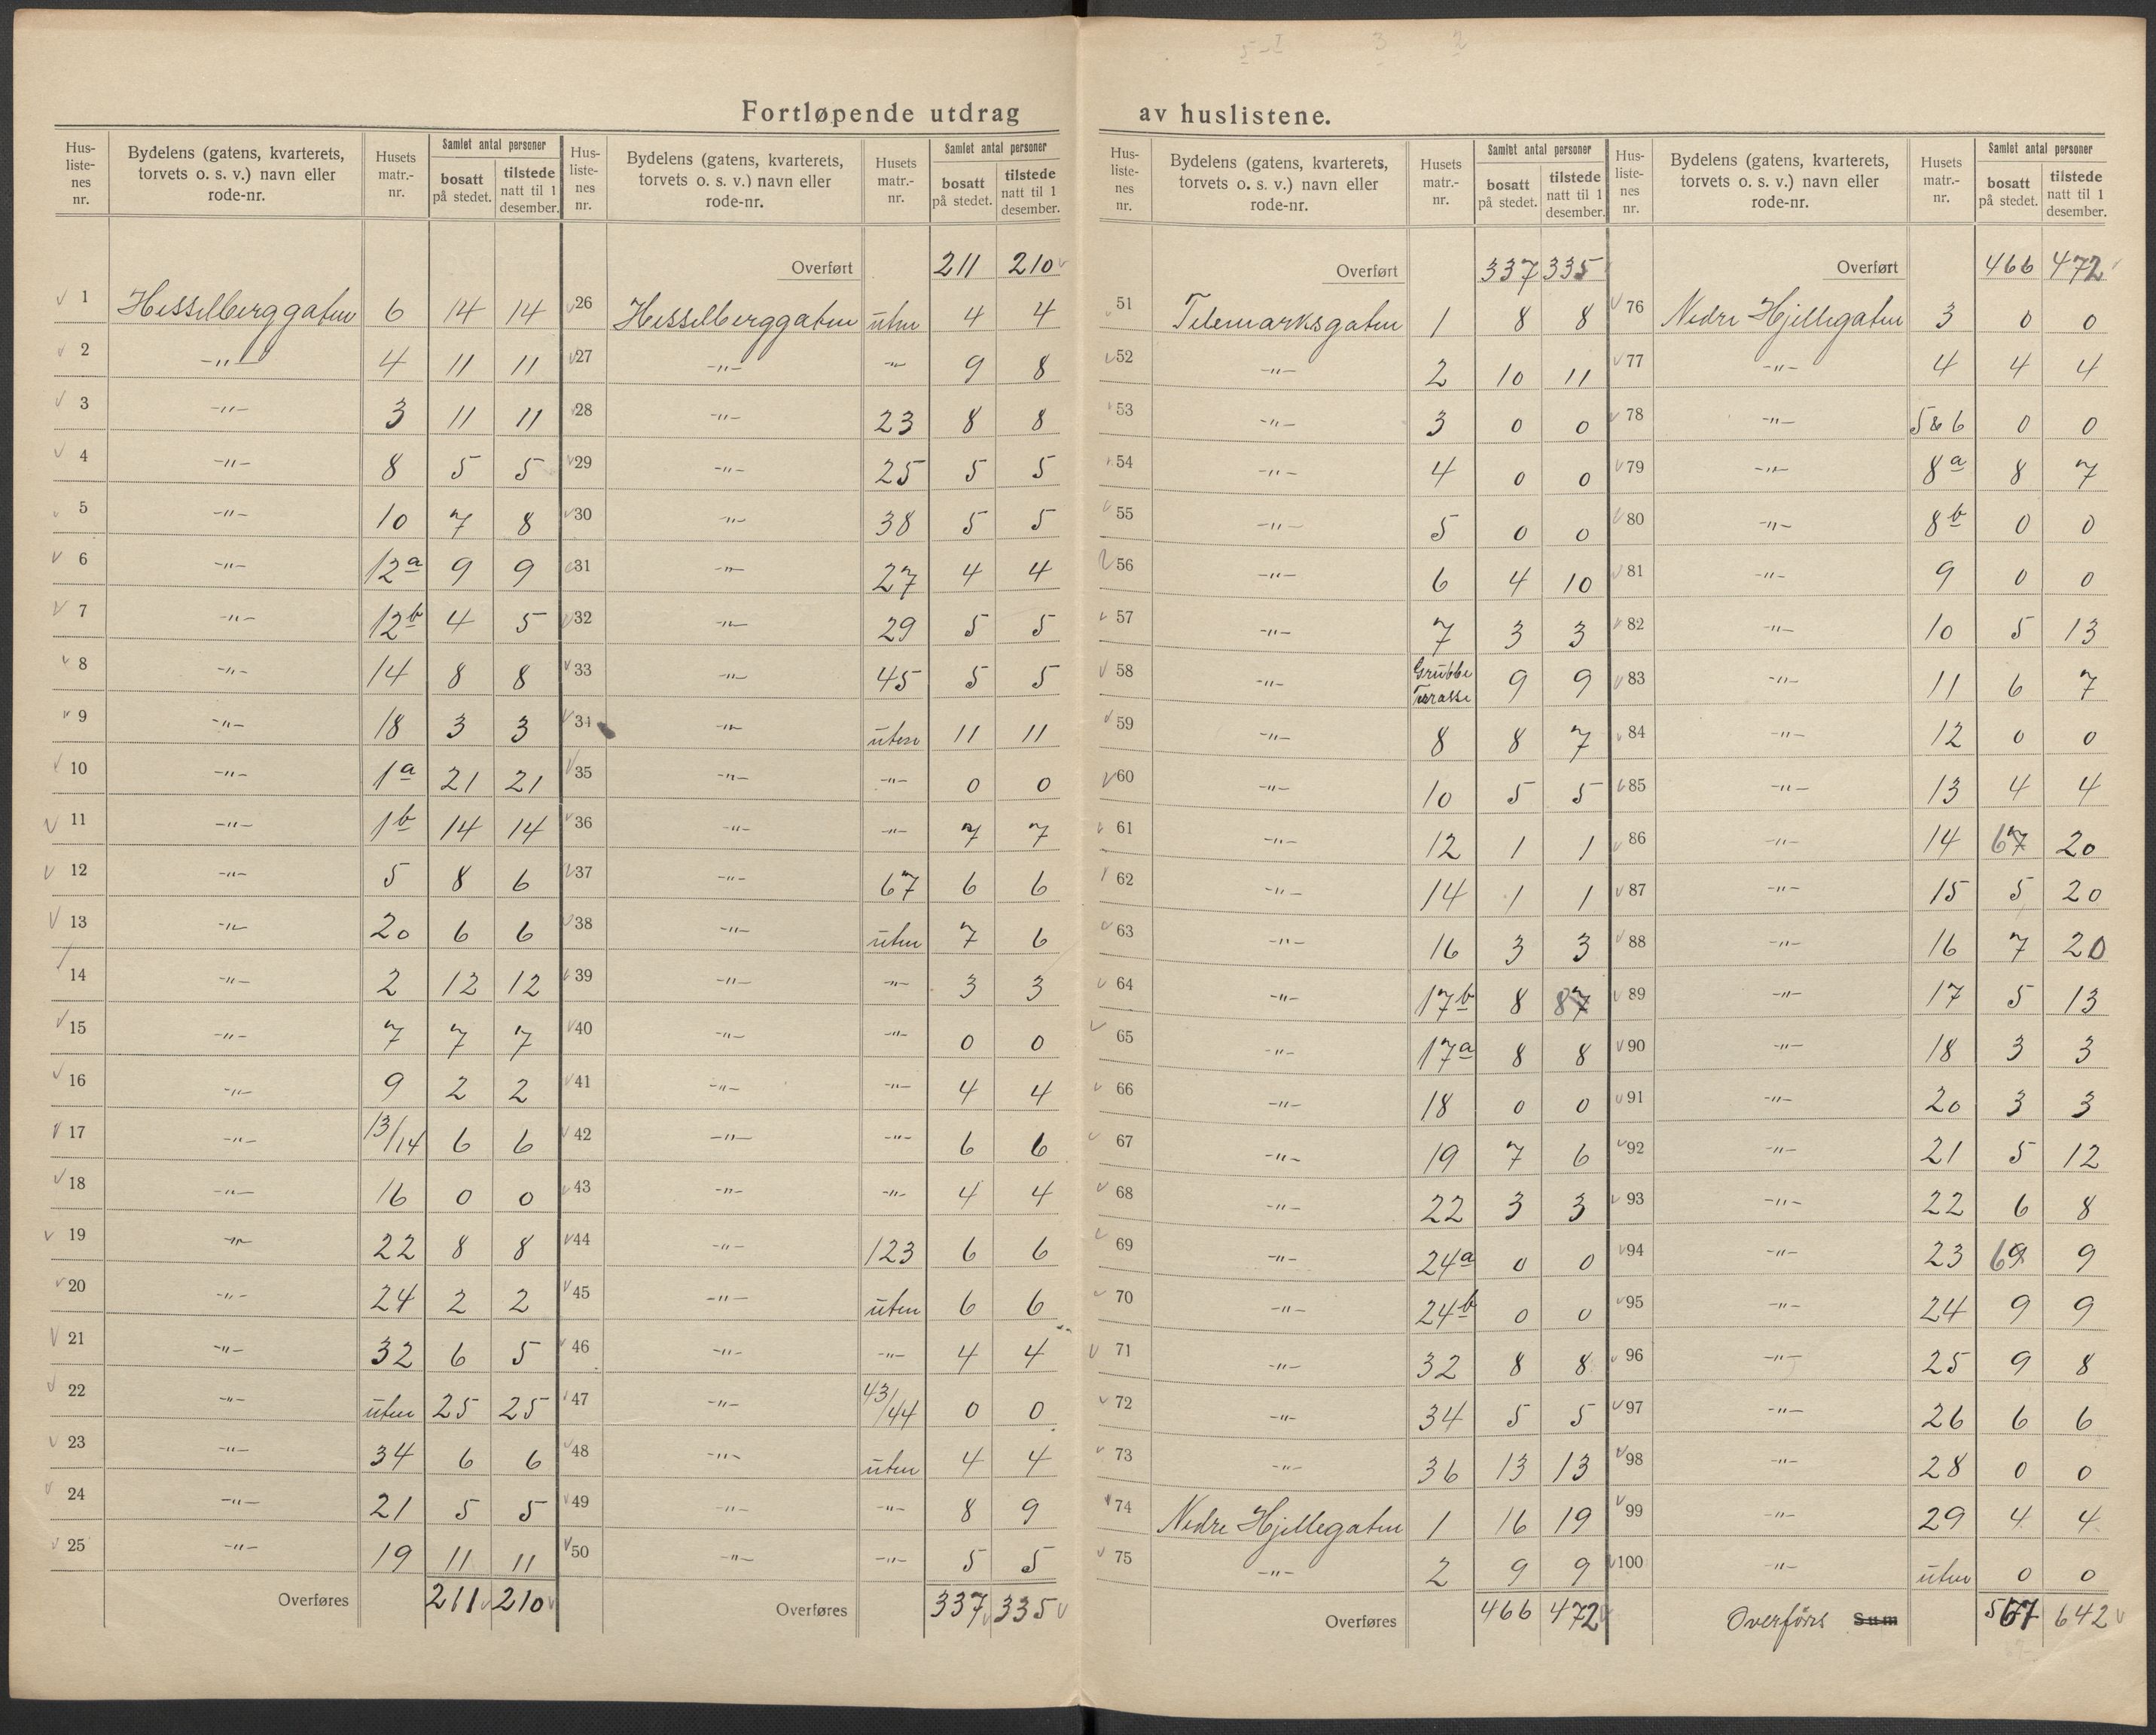 5-I 3 2
Fortløpende utdrag av huslistene.
Hus-liste-nes nr. | Bydelens (gatens, kvarterets, torvets o. s. v.) navn eller rode-nr. | Husets matr.-nr. | Samlet antal personer | bosatt på stedet. | tilstede natt til 1 desember.
1 Hesselberggaten 6 14 14
2 -"- 4 11 11
3 -"- 3 11 11
4 -"- 8 5 5
5 -"- 10 7 8
6 -"- 12a 9 9
7 -"- 12b 4 5
8 -"- 14 8 8
9 -"- 18 3 3
10 -"- 1a 21 21
11 -"- 1b 14 14
12 -"- 5 8 6
13 -"- 20 6 6
14 -"- 2 12 12
15 -"- 7 7 7
16 -"- 9 2 2
17 -"- 13/14 6 6
18 -"- 16 0 0
19 -"- 22 8 8
20 -"- 24 2 2
21 -"- 32 6 5
22 -"- uten 25 25
23 -"- 34 6 6
24 -"- 21 5 5
25 -"- 19 11 11
Overføres 211 210
Hus-liste-nes nr. | Bydelens (gatens, kvarterets, torvets o. s. v.) navn eller rode-nr. | Husets matr.-nr. | Samlet antal personer | bosatt på stedet. | tilstede natt til 1 desember.
Overført 211 210
26 Hesselberggaten uten 4 4
27 -"- -"- 9 8
28 -"- 23 8 8
29 -"- 25 5 5
30 -"- 38 5 5
31 -"- 27 4 4
32 -"- 29 5 5
33 -"- 45 5 5
34 -"- uten 11 11
35 -"- -"- 0 0
36 -"- -"- 7 7
37 -"- 67 6 6
38 -"- uten 7 6
39 -"- -"- 3 3
40 -"- -"- 0 0
41 -"- -"- 4 4
42 -"- -"- 6 6
43 -"- -"- 4 4
44 -"- 123 6 6
45 -"- uten 6 6
46 -"- -"- 4 4
47 -"- 43/44 0 0
48 -"- uten 4 4
49 -"- -"- 8 9
50 -"- -"- 5 5
Overføres 337 335
Hus-liste-nes nr. | Bydelens (gatens, kvarterets, torvets o. s. v.) navn eller rode-nr. | Husets matr.-nr. | Samlet antal personer | bosatt på stedet. | tilstede natt til 1 desember.
Overført 337 335
51 Telemarksgaten 1 8 8
52 -"- 2 10 11
53 -"- 3 0 0
54 -"- 4 0 0
55 -"- 5 0 0
56 -"- 6 4 10
57 -"- 7 3 3
58 -"- Grubbe Terasse 9 9
59 -"- 8 8 7
60 -"- 10 5 5
61 -"- 12 1 1
62 -"- 14 1 1
63 -"- 16 3 3
64 -"- 17b 8 87
65 -"- 17a 8 8
66 -"- 18 0 0
67 -"- 19 7 6
68 -"- 22 3 3
69 -"- 24a 0 0
70 -"- 24b 0 0
71 -"- 32 8 8
72 -"- 34 5 5
73 -"- 36 13 13
74 Nedre Hjellegaten 1 16 19
75 -"- 2 9 9
Overføres 466 472
Hus-liste-nes nr. | Bydelens (gatens, kvarterets, torvets o. s. v.) navn eller rode-nr. | Husets matr.-nr. | Samlet antal personer | bosatt på stedet. | tilstede natt til 1 desember.
Overført 466 472
76 Nedre Hjellegaten 3 0 0
77 -"- 4 4 4
78 -"- 5&6 0 0
79 -"- 8a 8 7
80 -"- 8b 0 0
81 -"- 9 0 0
82 -"- 10 5 13
83 -"- 11 6 7
84 -"- 12 0 0
85 -"- 13 4 4
86 -"- 14 67 20
87 -"- 15 5 20
88 -"- 16 7 20
89 -"- 17 5 13
90 -"- 18 3 3
91 -"- 20 3 3
92 -"- 21 5 12
93 -"- 22 6 8
94 -"- 23 69 9
95 -"- 24 9 9
96 -"- 25 9 8
97 -"- 26 6 6
98 -"- 28 0 0
99 -"- 29 4 4
100 -"- uten 0 0
Overføres Sum 567 642